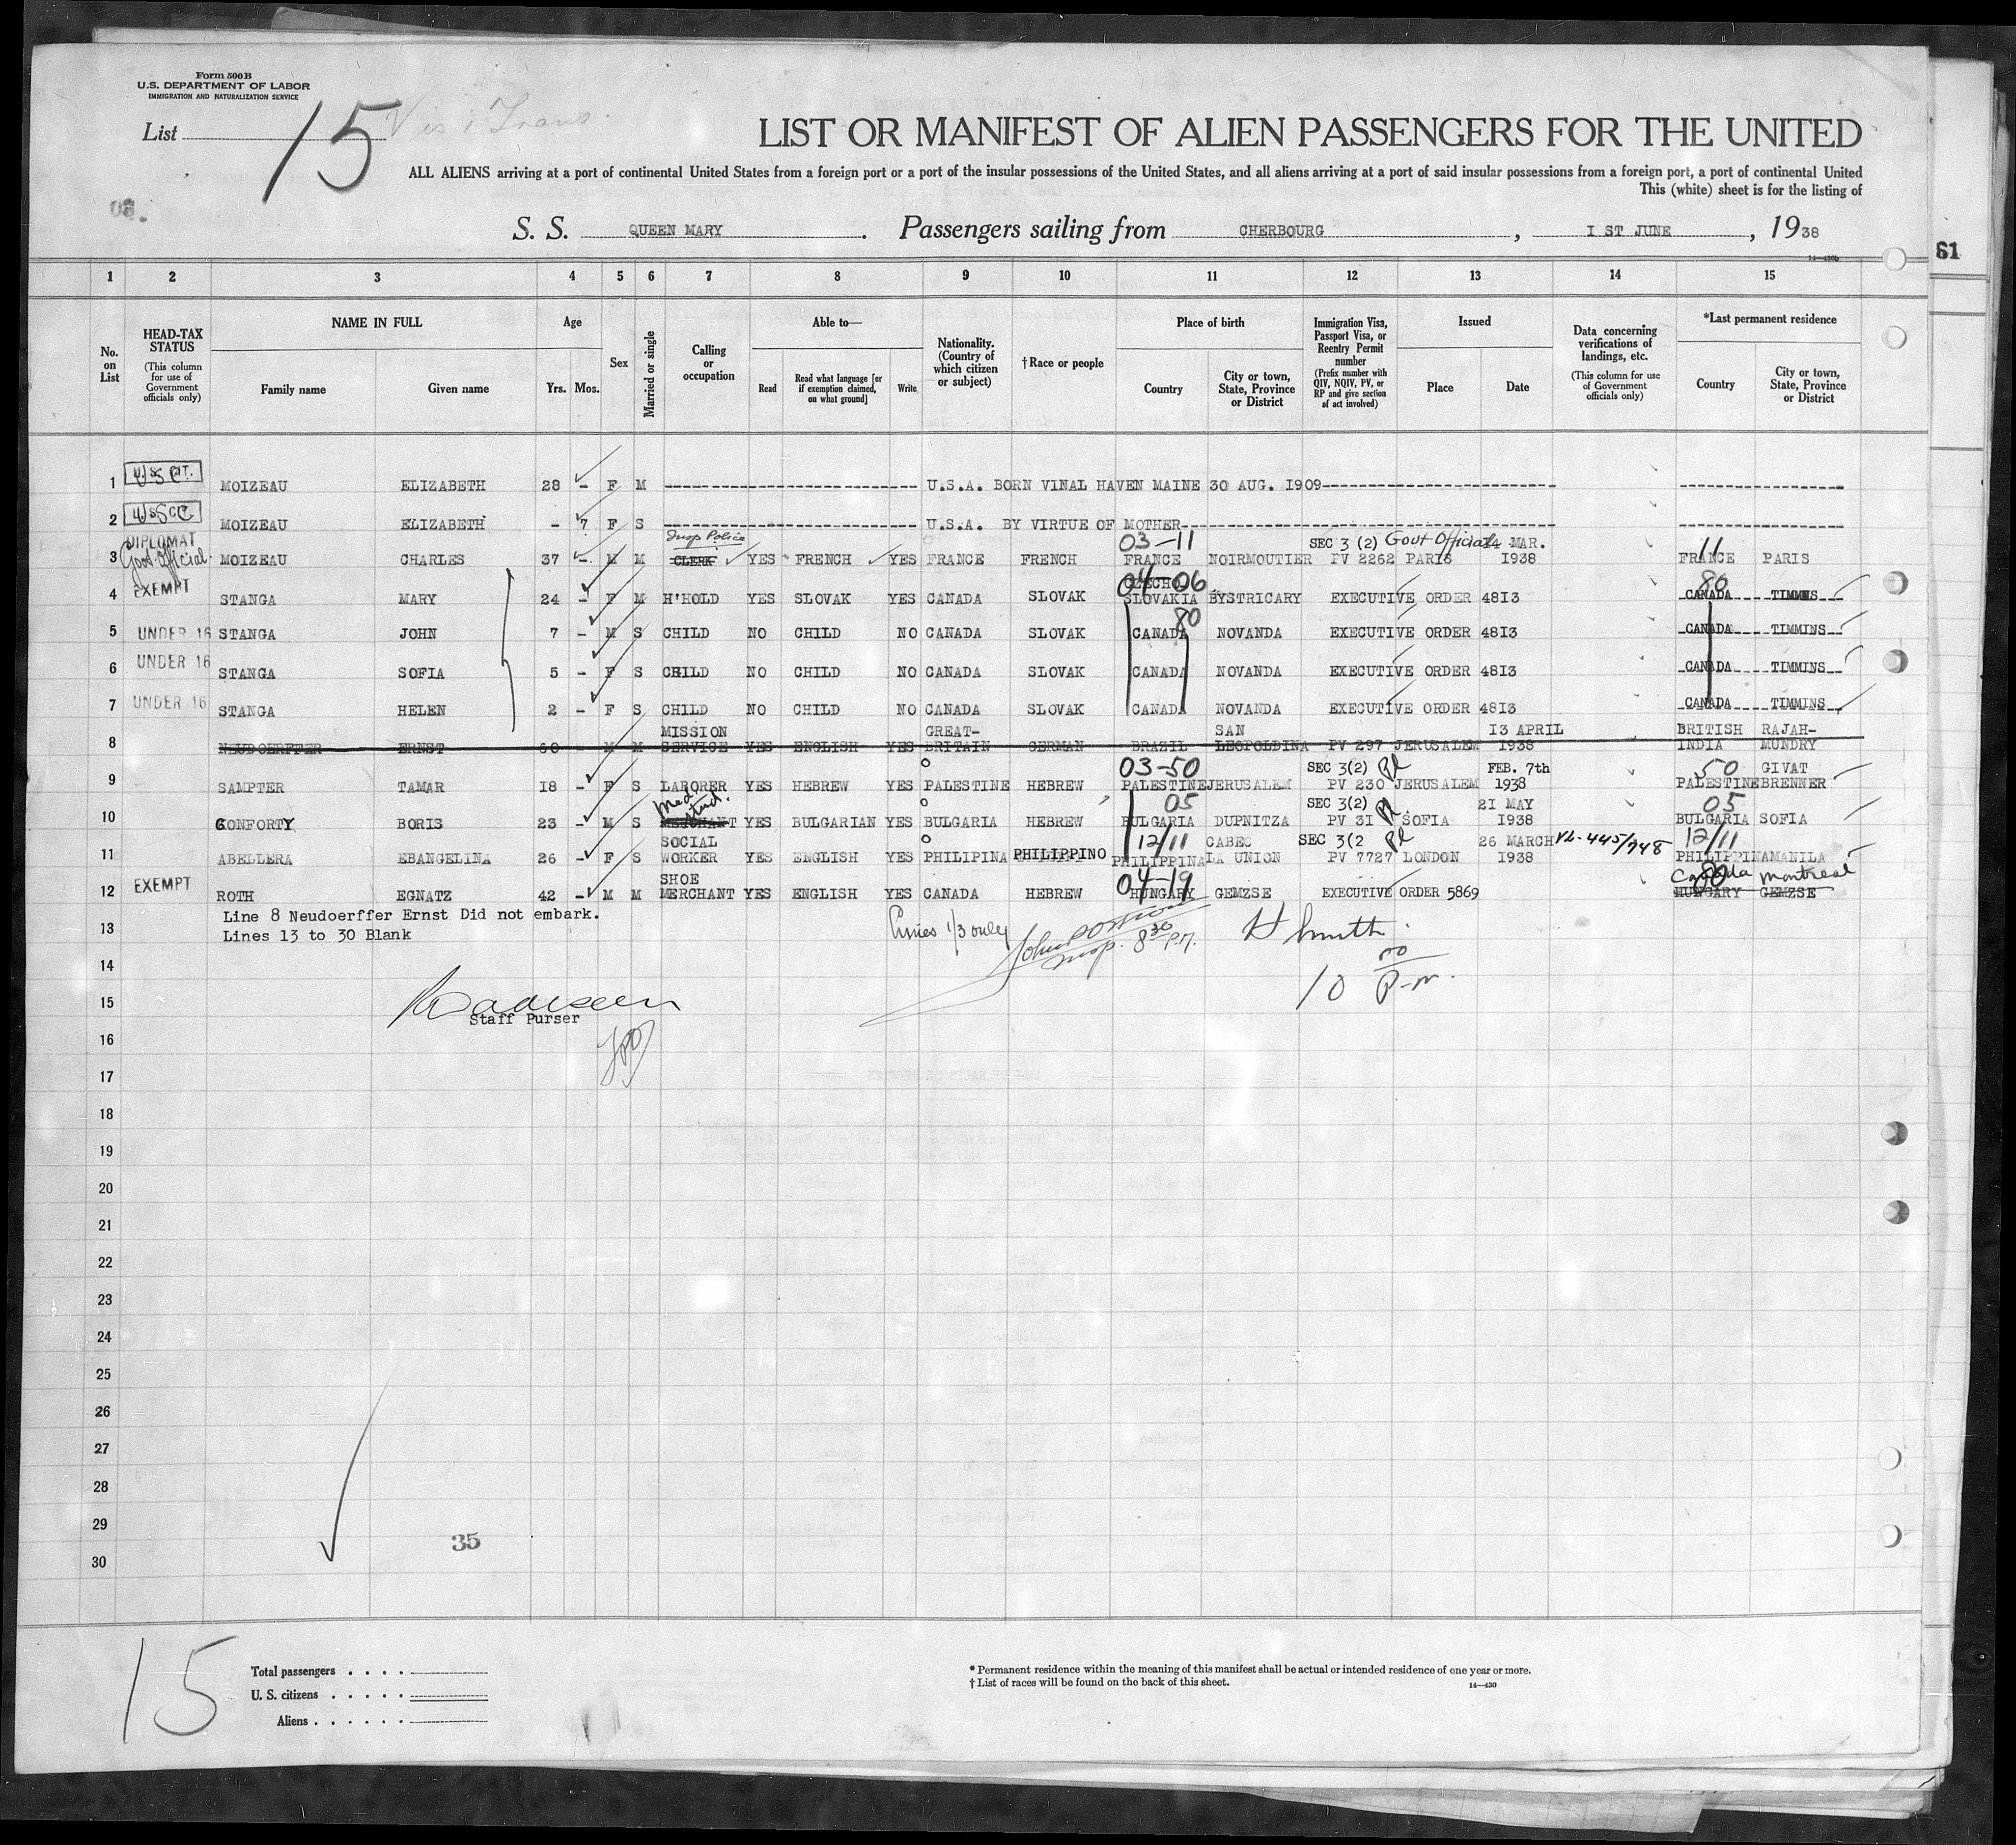 Form 500B
U.S. DEPARTMENT OF LABOR
IMMIGRATION AND NATURALIZATION SERVICE
List 15
LIST OR MANIFEST OF ALIEN PASSENGERS FOR THE UNITED
ALL ALIENS arriving at a port of continental United States from a foreign port or a port of the insular possessions of the United States, and all aliens arriving at a port of said insular possessions from a foreign port, a port of continental United
This (white) sheet is for the listing of
S. S. QUEEN MARY. Passengers sailing from CHERBOURG, I ST JUNE, 1938
61
1 2 3 4 5 6 7 8 9 10 11 12 13 14 15
No. on List
HEAD-TAX STATUS (This column for use of Government officials only)
NAME IN FULL
Family name Given name
Age
Yrs. Mos.
Sex
Married or single
Calling or occupation
Able to—
Read Read what language [or if exemption claimed, on what ground] Write
Nationality. (Country of which citizen or subject)
†Race or people
Place of birth
Country City or town, State, Province or District
Immigration Visa, Passport Visa, or Reentry Permit number (Prefix number with QIV, NQIV, PV, or RP and give section of act involved)
Issued
Place Date
Data concerning verifications of landings, etc. (This column for use of Government officials only)
*Last permanent residence
Country City or town, State, Province or District
1 MOIZEAU ELIZABETH 28 - F M U.S.A. BORN VINAL HAVEN MAINE 30 AUG. 1909
2 MOIZEAU ELIZABETH - 7 F S U.S.A. BY VIRTUE OF MOTHER
DIPLOMAT Insp Police 03-11 SEC 3 (2) Govt Official 11
3 Govt Official. MOIZEAU CHARLES 37 - M M CLERK YES FRENCH YES FRANCE FRENCH FRANCE NOIRMOUTIER PV 2262 PARIS 14 MAR. 1938 FRANCE PARIS
EXEMPT 04-06 80
4 STANGA MARY 24 - F M H'HOLD YES SLOVAK YES CANADA SLOVAK CZECHO SLOVAKIA BYSTRICARY EXECUTIVE ORDER 48I3 CANADA TIMMNS
80
5 UNDER 16 STANGA JOHN 7 - M S CHILD NO CHILD NO CANADA SLOVAK CANADA NOVANDA EXECUTIVE ORDER 48I3 CANADA TIMMINS
6 UNDER 16 STANGA SOFIA 5 - F S CHILD NO CHILD NO CANADA SLOVAK CANADA NOVANDA EXECUTIVE ORDER 48I3 CANADA TIMMINS
7 UNDER 16 STANGA HELEN 2 - F S CHILD NO CHILD NO CANADA SLOVAK CANADA NOVANDA EXECUTIVE ORDER 48I3 CANADA TIMMINS
8 NEUDOERFFER ERNST 60 - M M MISSION SERVICE YES ENGLISH YES GREAT-BRITAIN GERMAN BRAZIL SAN LEOPOLDINA PV 297 JERUSALEM I3 APRIL I938 BRITISH INDIA RAJAH-MUNDRY
03-50 SEC 3(2) 50
9 SAMPTER TAMAR I8 - F S LABORER YES HEBREW YES PALESTINE HEBREW PALESTINE JERUSALEM PV 230 JERUSALEM FEB. 7th 1938 PALESTINE GIVAT BRENNER
Med. stud. 05 SEC 3(2) 05
10 CONFORTY BORIS 23 - M S MERCHANT YES BULGARIAN YES BULGARIA HEBREW BULGARIA DUPNITZA PV 3I SOFIA 2I MAY I938 BULGARIA SOFIA
12/11 SEC 3(2 12/11
11 ABELLERA EBANGELINA 26 - F S SOCIAL WORKER YES ENGLISH YES PHILIPINA PHILIPPINO PHILIPPINA CABEC LA UNION PV 7727 LONDON 26 MARCH I938 PHILIPPINA MANILA
EXEMPT 04-19 Canada Montreal 80
12 ROTH EGNATZ 42 - M M SHOE MERCHANT YES ENGLISH YES CANADA HEBREW HUNGARY GEMZSE EXECUTIVE ORDER 5869 HUNGARY GEMZSE
Line 8 Neudoerffer Ernst Did not embark.
13 Lines 13 to 30 Blank
Insp. 8 30 P.M.
H Smith
14
10 00 P.m.
15
Staff Purser
16
17
18
19
20
21
22
23
24
25
26
27
28
29
35
30
15
Total passengers
U. S. citizens
Aliens
* Permanent residence within the meaning of this manifest shall be actual or intended residence of one year or more.
† List of races will be found on the back of this sheet.
14—430